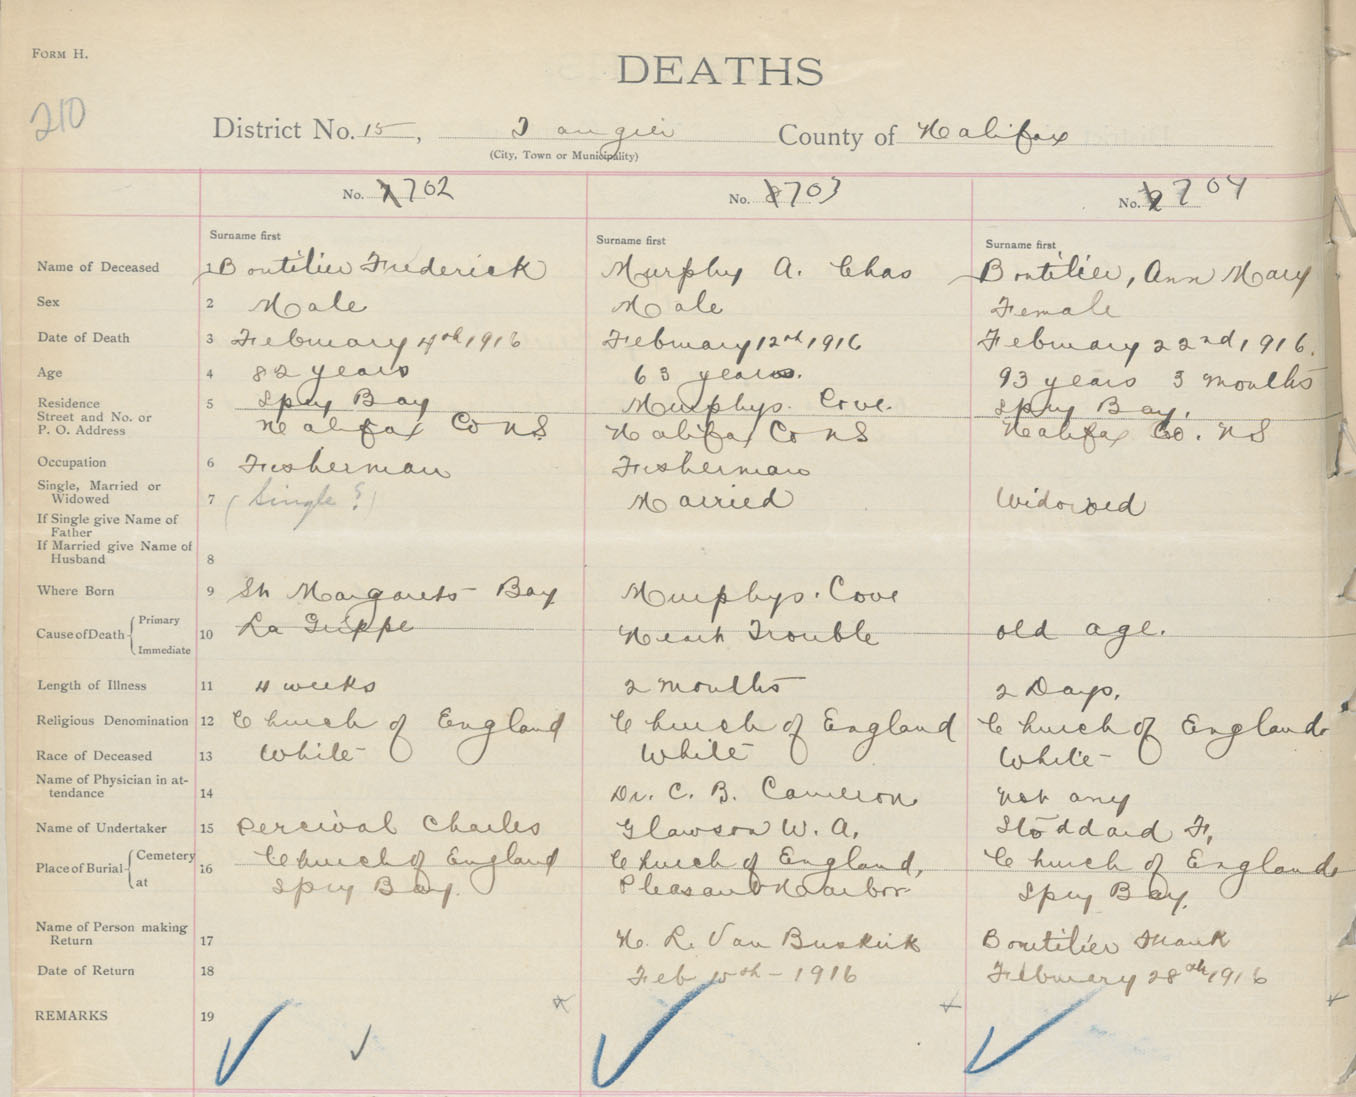 FORM H.
DEATHS
210
District No. 15, Tangier County of Halifax
(City, Town or Municipality)
No. 702 No. 703 No. 704
Surname first Surname first Surname first
Name of Deceased 1 Boutilier Frederick Murphy A. Chas Boutilier, Ann Mary
Sex 2 Male Male Female
Date of Death 3 February 4th 1916 February 12th 1916 February 22nd, 1916.
Age 4 82 years 63 years. 93 years 3 months
Residence 5 Spry Bay Murphys. Cove. Spry Bay,
Street and No. or
P. O. Address Halifax Co NS. Halifax Co NS Halifax Co. NS
Occupation 6 Fisherman Fisherman
Single, Married or
Widowed 7 (Single?) Married Widowed
If Single give Name of
Father
If Married give Name of
Husband 8
Where Born 9 St Margarets Bay Murphys. Cove
Cause of Death { Primary
Immediate 10 La Grippe Heart Trouble old age.
Length of Illness 11 4 weeks 2 months 2 Days.
Religious Denomination 12 Church of England Church of England Church of England
Race of Deceased 13 White White White
Name of Physician in at-
tendance 14 Dr. C. B. Cameron Not any
Name of Undertaker 15 Percival Charles Glawson W. A. Stoddard F.
Place of Burial { Cemetery
at 16 Church of England Church of England, Church of England
Spry Bay. Pleasant Harbor Spry Bay.
Name of Person making
Return 17 H. L. Van Buskirk Boutilier Frank
Date of Return 18 Feb - 1916 February 28th 1916
REMARKS 19